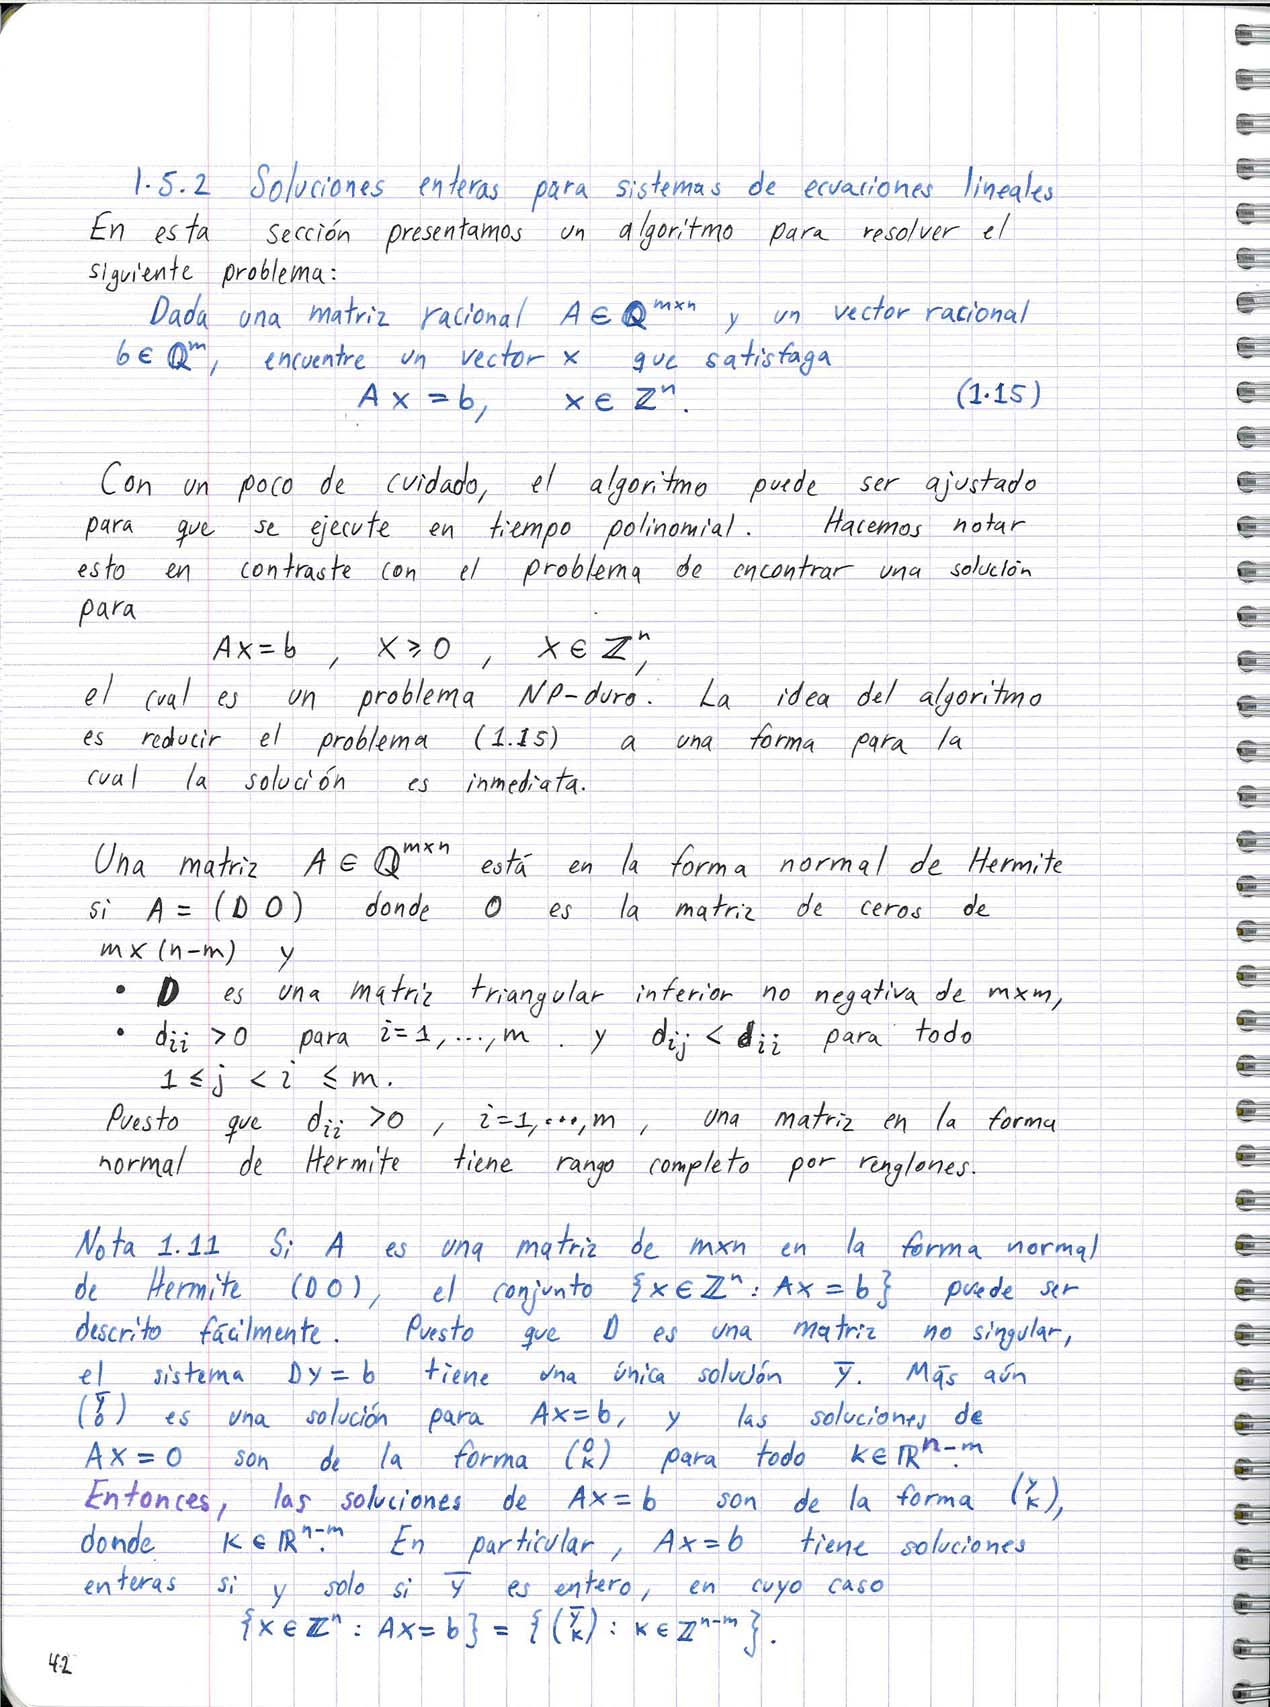 1.5.2 Soluciones enteras para sistemas de ecuaciones lineales
En esta sección presentamos un algoritmo para resolver el
siguiente problema:
Dada una matriz racional A ∈ ℚ^{m×n} y un vector racional
b ∈ ℚ^m, encuentre un vector x que satisfaga
Ax = b, x ∈ ℤ^n. (1.15)
Con un poco de cuidado, el algoritmo puede ser ajustado
para que se ejecute en tiempo polinomial. Hacemos notar
esto en contraste con el problema de encontrar una solución
para
Ax = b , x ≥ 0 , x ∈ ℤ^n,
el cual es un problema NP-duro. La idea del algoritmo
es reducir el problema (1.15) a una forma para la
cual la solución es inmediata.
Una matriz A ∈ ℚ^{m×n} está en la forma normal de Hermite
si A = (D 0) donde 0 es la matriz de ceros de
m×(n-m) y
• D es una matriz triangular inferior no negativa de m×m,
• d_{ii} > 0 para i=1,...,m . y d_{ij} < d_{ii} para todo
1 ≤ j < i ≤ m.
Puesto que d_{ii} > 0 , i=1,...,m , una matriz en la forma
normal de Hermite tiene rango completo por renglones.
Nota 1.11 Si A es una matriz de m×n en la forma normal
de Hermite (D 0), el conjunto {x ∈ ℤ^n : Ax = b} puede ser
descrito fácilmente. Puesto que D es una matriz no singular,
el sistema Dy = b tiene una única solución ȳ. Más aún
(ȳ 0) es una solución para Ax = b, y las soluciones de
Ax = 0 son de la forma (0 k) para todo k ∈ ℝ^{n-m}.
Entonces, las soluciones de Ax = b son de la forma (ȳ k),
donde k ∈ ℝ^{n-m}. En particular, Ax = b tiene soluciones
enteras si y solo si ȳ es entero, en cuyo caso
{x ∈ ℤ^n : Ax = b} = {(ȳ k) : k ∈ ℤ^{n-m}}.
42